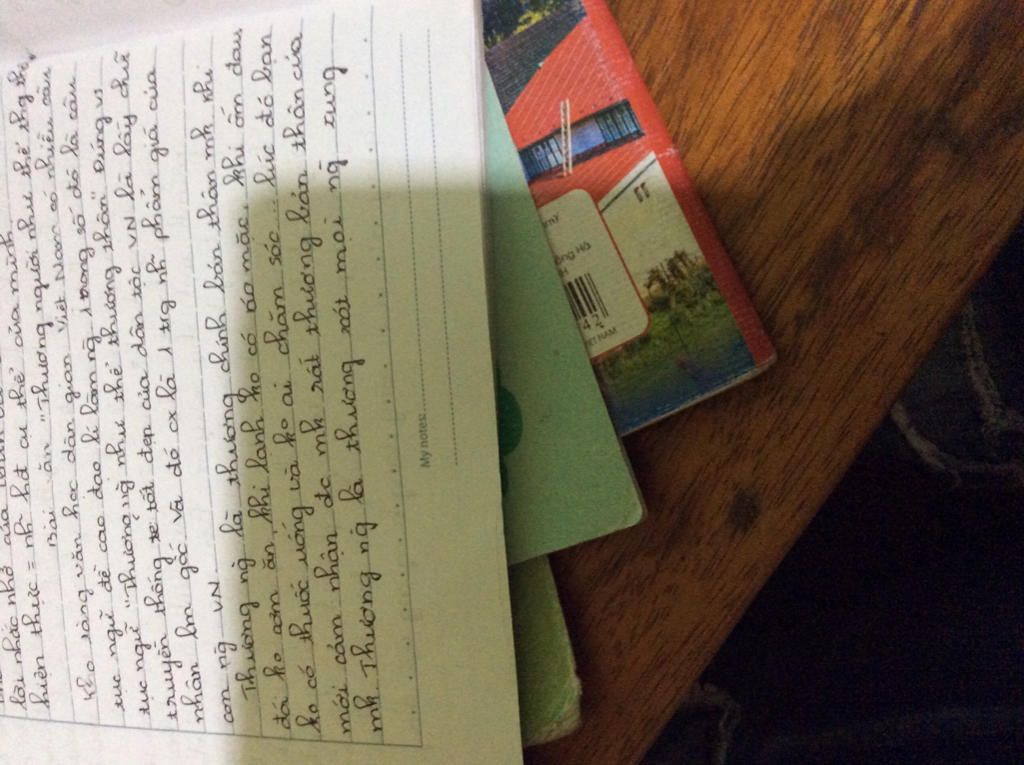 lời nhắc nhở của
hiện thực = nh hđ cụ thể của mình
Bài văn "Thương người như thể thg thân
Kho tàng văn học dân gian Việt Nam có nhiều câu
tục ngữ đề cao đạo lí làm ng 1 trong số đó là câu
tục ngữ "Thương ng như thể thương thân" Đúng vs
truyền thống tốt đẹp của dân tộc VN là lấy chữ
nhân lm gốc và đó cx là 1 tg nh phẩm giá của
con ng VN
Thương ng là thương chính bản thân mk khi
đói ko cơm ăn, khi lạnh ko có áo mặc, khi ốm đau
ko có thuốc uống và ko ai chăm sóc... lúc đó bạn
mới cảm nhận đc mk rất thương bản thân của
mk Thương ng là thương xót mọi ng xung
My notes:
ông Hà
42
IET NAM